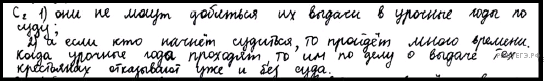 С2 1) они не могут добиться их выдачи в урочные годы по
суду;
2) а если кто начнёт судиться, то пройдёт много времени.
Когда урочные года проходят, то им по делу о выдаче тех
крестьянах отказывают уже и без суда.